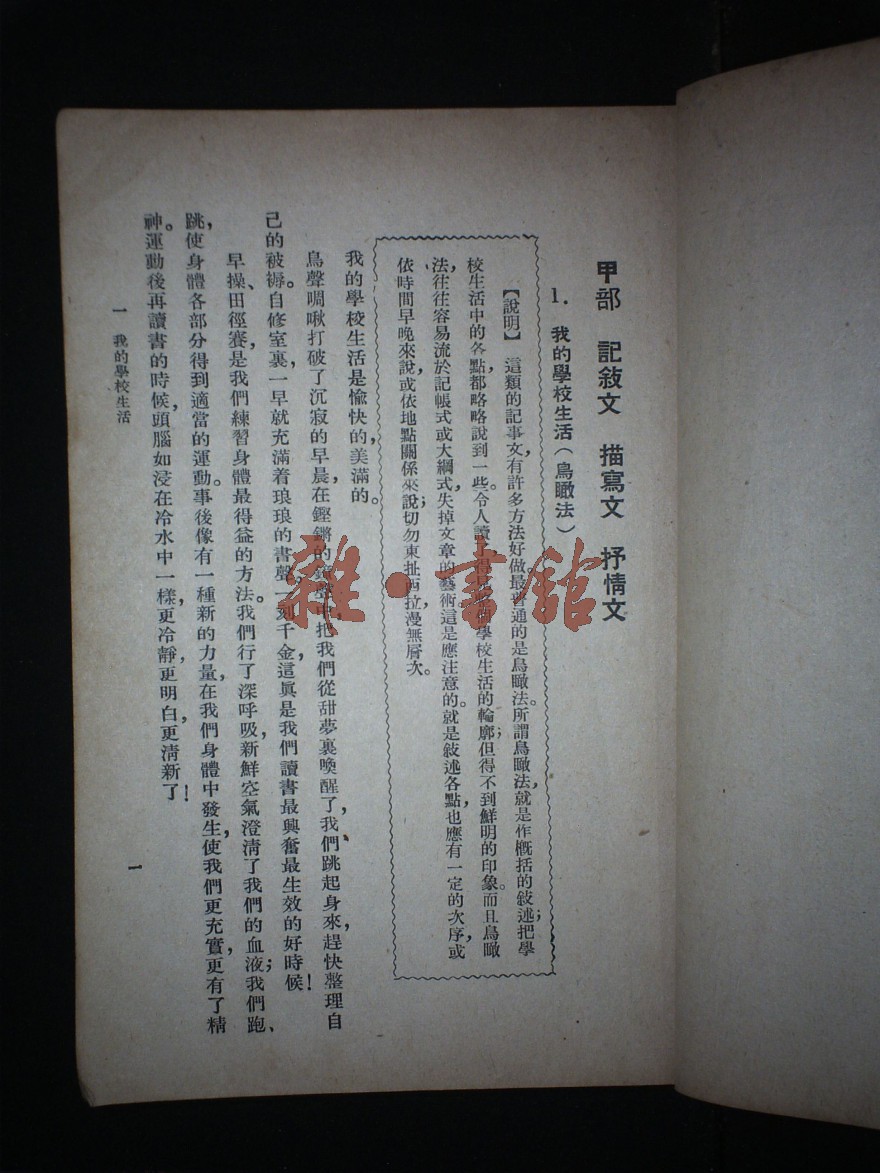 甲部　記敍文　描寫文　抒情文
1. 我的學校生活（鳥瞰法）
【說明】　這類的記事文，有許多方法好做，最普通的是鳥瞰法。所謂鳥瞰法，就是作概括的敍述；把學
校生活中的各點，都略略說到一些。令人讀了，得見整個學校生活的輪廓；但得不到鮮明的印象。而且鳥瞰
法，往往容易流於記帳式或大綱式，失掉文章的藝術，這是應注意的。就是敍述各點，也應有一定的次序，或
依時間早晚來說，或依地點關係來說；切勿東扯西拉，漫無層次。
我的學校生活是愉快的，美滿的。
鳥聲啁啾，打破了沉寂的早晨，在鏗鏘的鐘聲中，把我們從甜夢裏喚醒了，我們跳起身來，趕快整理自
己的被褥。自修室裏，一早就充滿着琅琅的書聲，一刻千金，這眞是我們讀書最興奮最生效的好時候！
早操、田徑賽，是我們練習身體最得益的方法。我們行了深呼吸，新鮮空氣澄清了我們的血液；我們跑、
跳，使身體各部分得到適當的運動。事後像有一種新的力量，在我們身體中發生，使我們更充實，更有了精
神。運動後再讀書的時候，頭腦如浸在冷水中一樣，更冷靜，更明白，更清新了！
一　我的學校生活
一
雜·書館